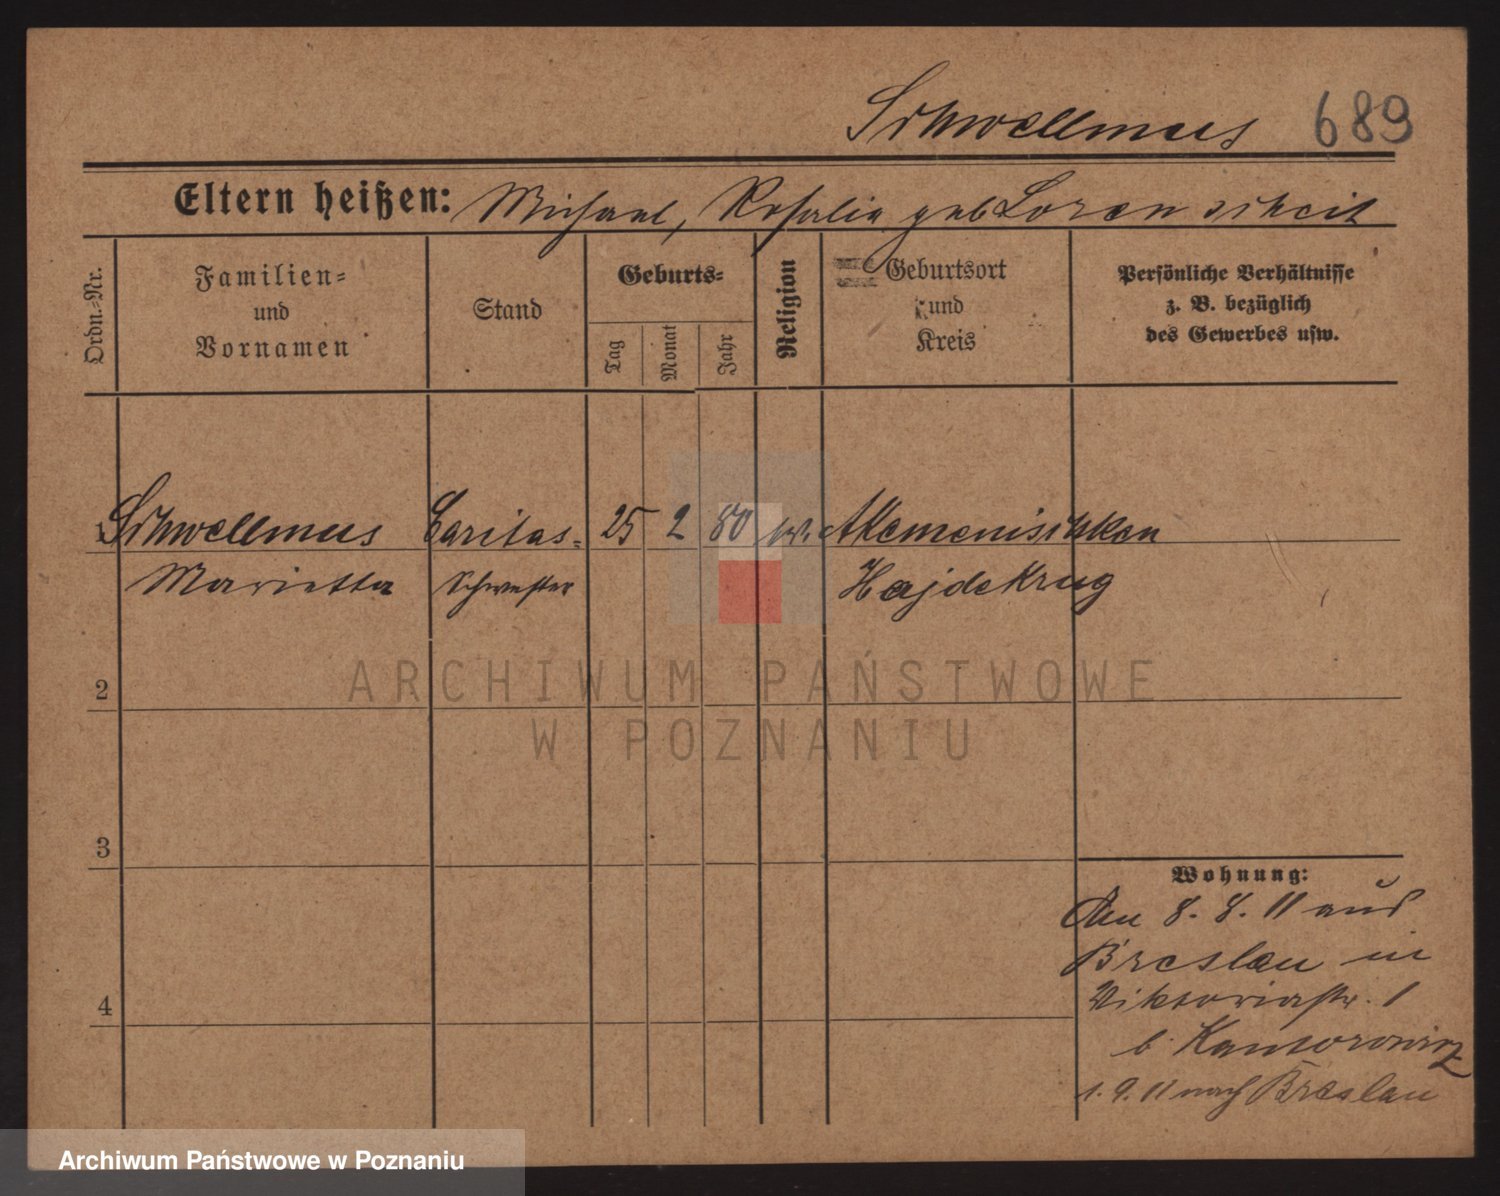 Schwellmus 689
Eltern heißen: Michael, Rosalia geb Lorenscheit
Ordn.-Nr.
Familien-
und
Vornamen
Stand
Geburts-
Tag
Monat
Jahr
Religion
Geburtsort
und
Kreis
Persönliche Verhältnisse
z. B. bezüglich
des Gewerbes usw.
1 Schwellmus Caritas- 25 2 80
Marietta Schwester Hajdekrug
2
3
4
Wohnung:
Am 8. 8. 11 aus
Breslau in
Viktoriastr. 1
b. Kantorowicz
1. 9. 11 nach Breslau
ARCHIWUM PAŃSTWOWE
W POZNANIU
Archiwum Państwowe w Poznaniu